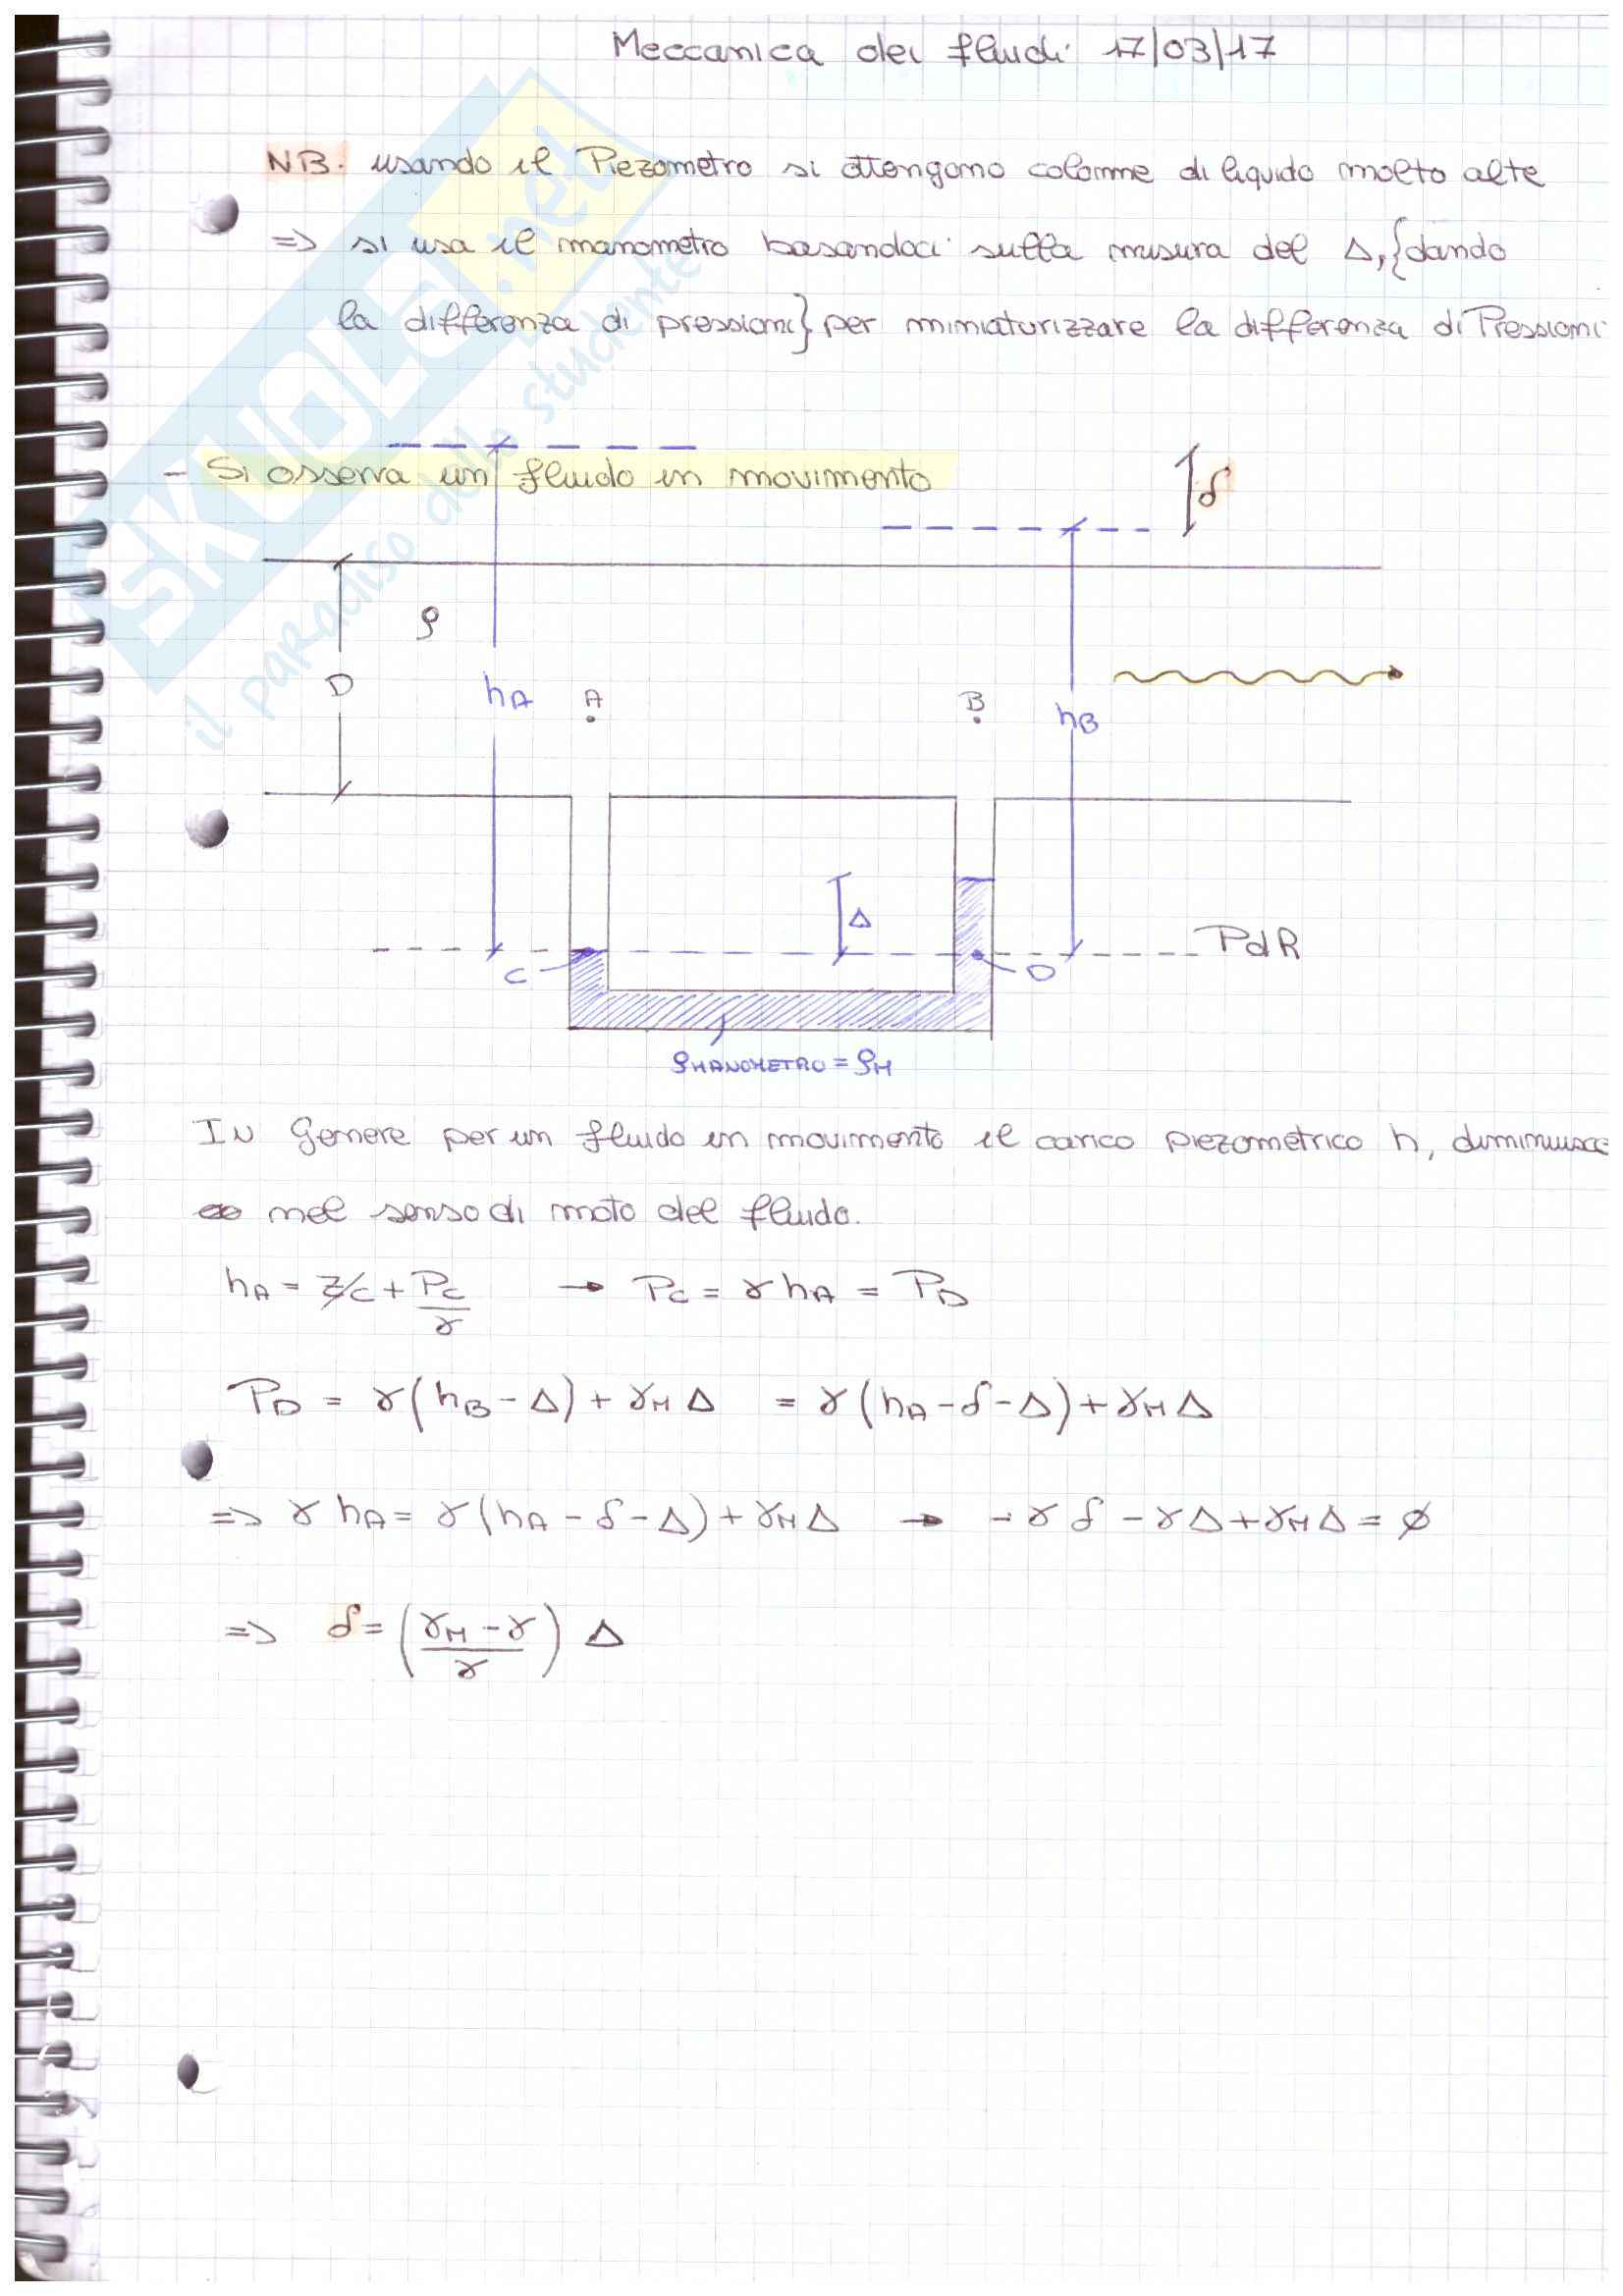 Meccanica dei fluidi 17/03/17
NB. usando il Piezometro si ottengono colonne di liquido molto alte
=> si usa il manometro basandoci sulla misura del Δ, {dando
la differenza di pressioni} per miniaturizzare la differenza di Pressioni
- Si osserva un fluido in movimento
δ
ρ
D
hA
A
B
hB
Δ
PdR
C
D
ρMANOMETRO = ρM
IN Genere per un fluido in movimento il carico piezometrico h, diminuisce
nel senso di moto del fluido.
hA = zC + PC/γ → PC = γ hA = PD
PD = γ(hB - Δ) + γM Δ = γ(hA - δ - Δ) + γM Δ
=> γ hA = γ(hA - δ - Δ) + γM Δ → - γ δ - γ Δ + γM Δ = ∅
=> δ = (γM - γ / γ) Δ
SKUOLA.net
il paradiso dello studente